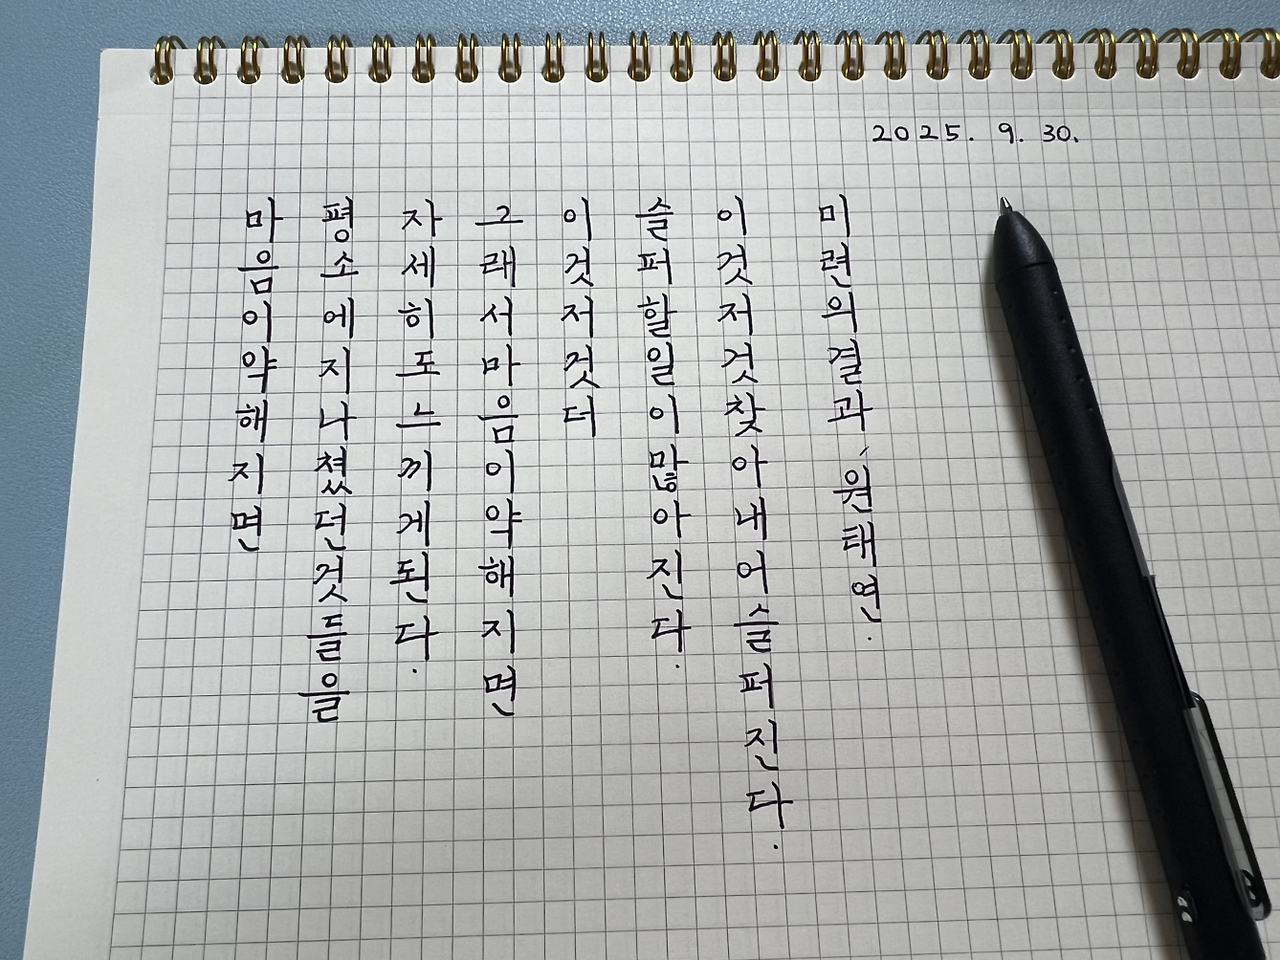 2025. 9. 30.
마음이약해지면
평소에지나쳤던것들을
자세히도느끼게된다.
그래서마음이약해지면
이것저것더
슬퍼할일이많아진다.
이것저것찾아내어슬퍼진다.
미련의결과, 원태연.